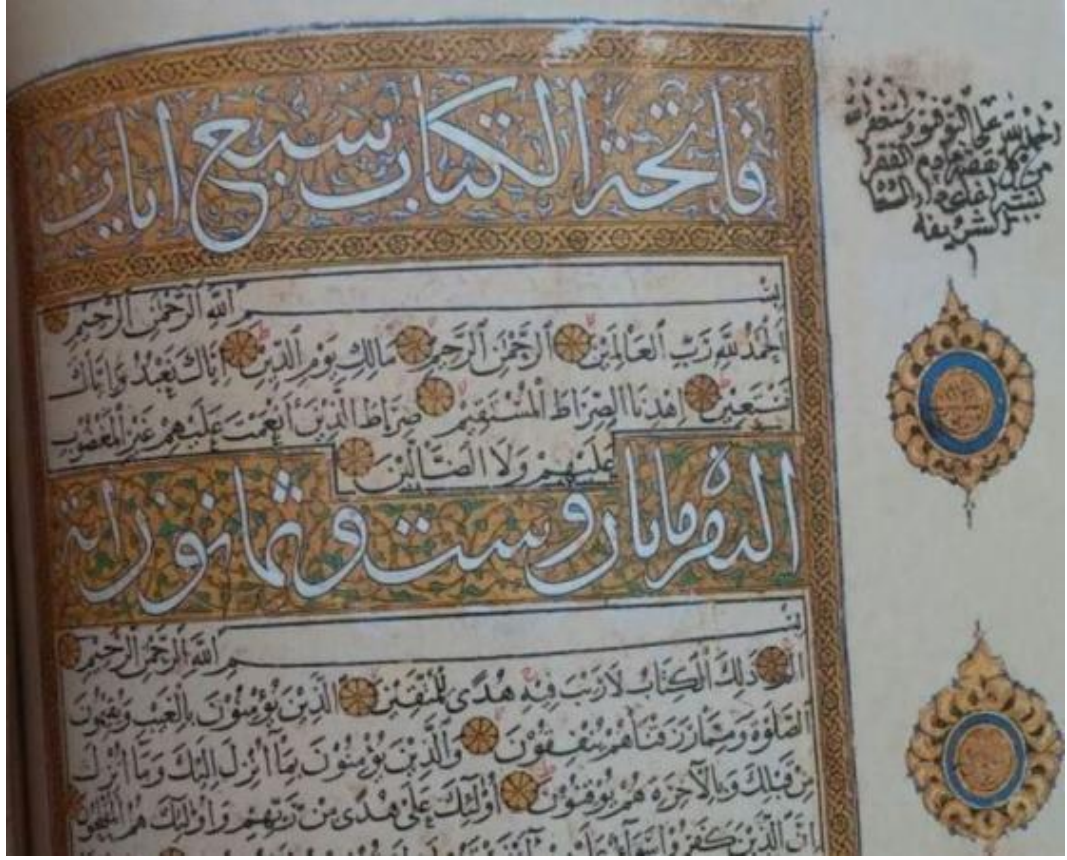 فاتحة الكتاب سبع ايات
بِسْمِ اللَّهِ الرَّحْمَٰنِ الرَّحِيمِ
الْحَمْدُ لِلَّهِ رَبِّ الْعَالَمِينَ الرَّحْمَٰنِ الرَّحِيمِ مَالِكِ يَوْمِ الدِّينِ إِيَّاكَ نَعْبُدُ وَإِيَّاكَ
نَسْتَعِينُ اهْدِنَا الصِّرَاطَ الْمُسْتَقِيمَ صِرَاطَ الَّذِينَ أَنْعَمْتَ عَلَيْهِمْ غَيْرِ الْمَغْضُوبِ
عَلَيْهِمْ وَلَا الضَّالِّينَ
البقره مايتان وست وثمانون اية
بِسْمِ اللَّهِ الرَّحْمَٰنِ الرَّحِيمِ
الم ذَلِكَ الْكِتَابُ لَا رَيْبَ فِيهِ هُدًى لِلْمُتَّقِينَ الَّذِينَ يُؤْمِنُونَ بِالْغَيْبِ وَيُقِيمُونَ
الصَّلَوٰةَ وَمِمَّا رَزَقْنَاهُمْ يُنْفِقُونَ وَالَّذِينَ يُؤْمِنُونَ بِمَا أُنْزِلَ إِلَيْكَ وَمَا أُنْزِلَ
مِنْ قَبْلِكَ وَبِالْآخِرَةِ هُمْ يُوقِنُونَ أُولَٰئِكَ عَلَىٰ هُدًى مِنْ رَبِّهِمْ وَأُولَٰئِكَ هُمُ الْمُفْلِحُونَ
إِنَّ الَّذِينَ كَفَرُوا سَوَاءٌ عَلَيْهِمْ
الحمد لله على التوفيق واستغفر الله
من كل
الشريفه